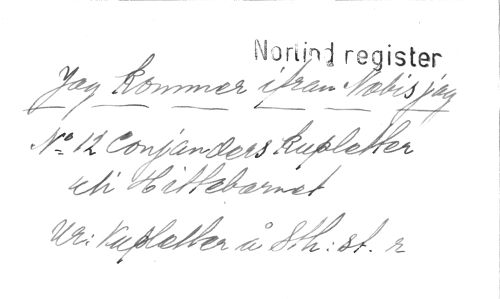 Norlind register
Jag kommer ifran Nobis jag
No 12 Conjanders kupletter
uti Hittebarnet
Ur: Kupletter å Sth: st. r